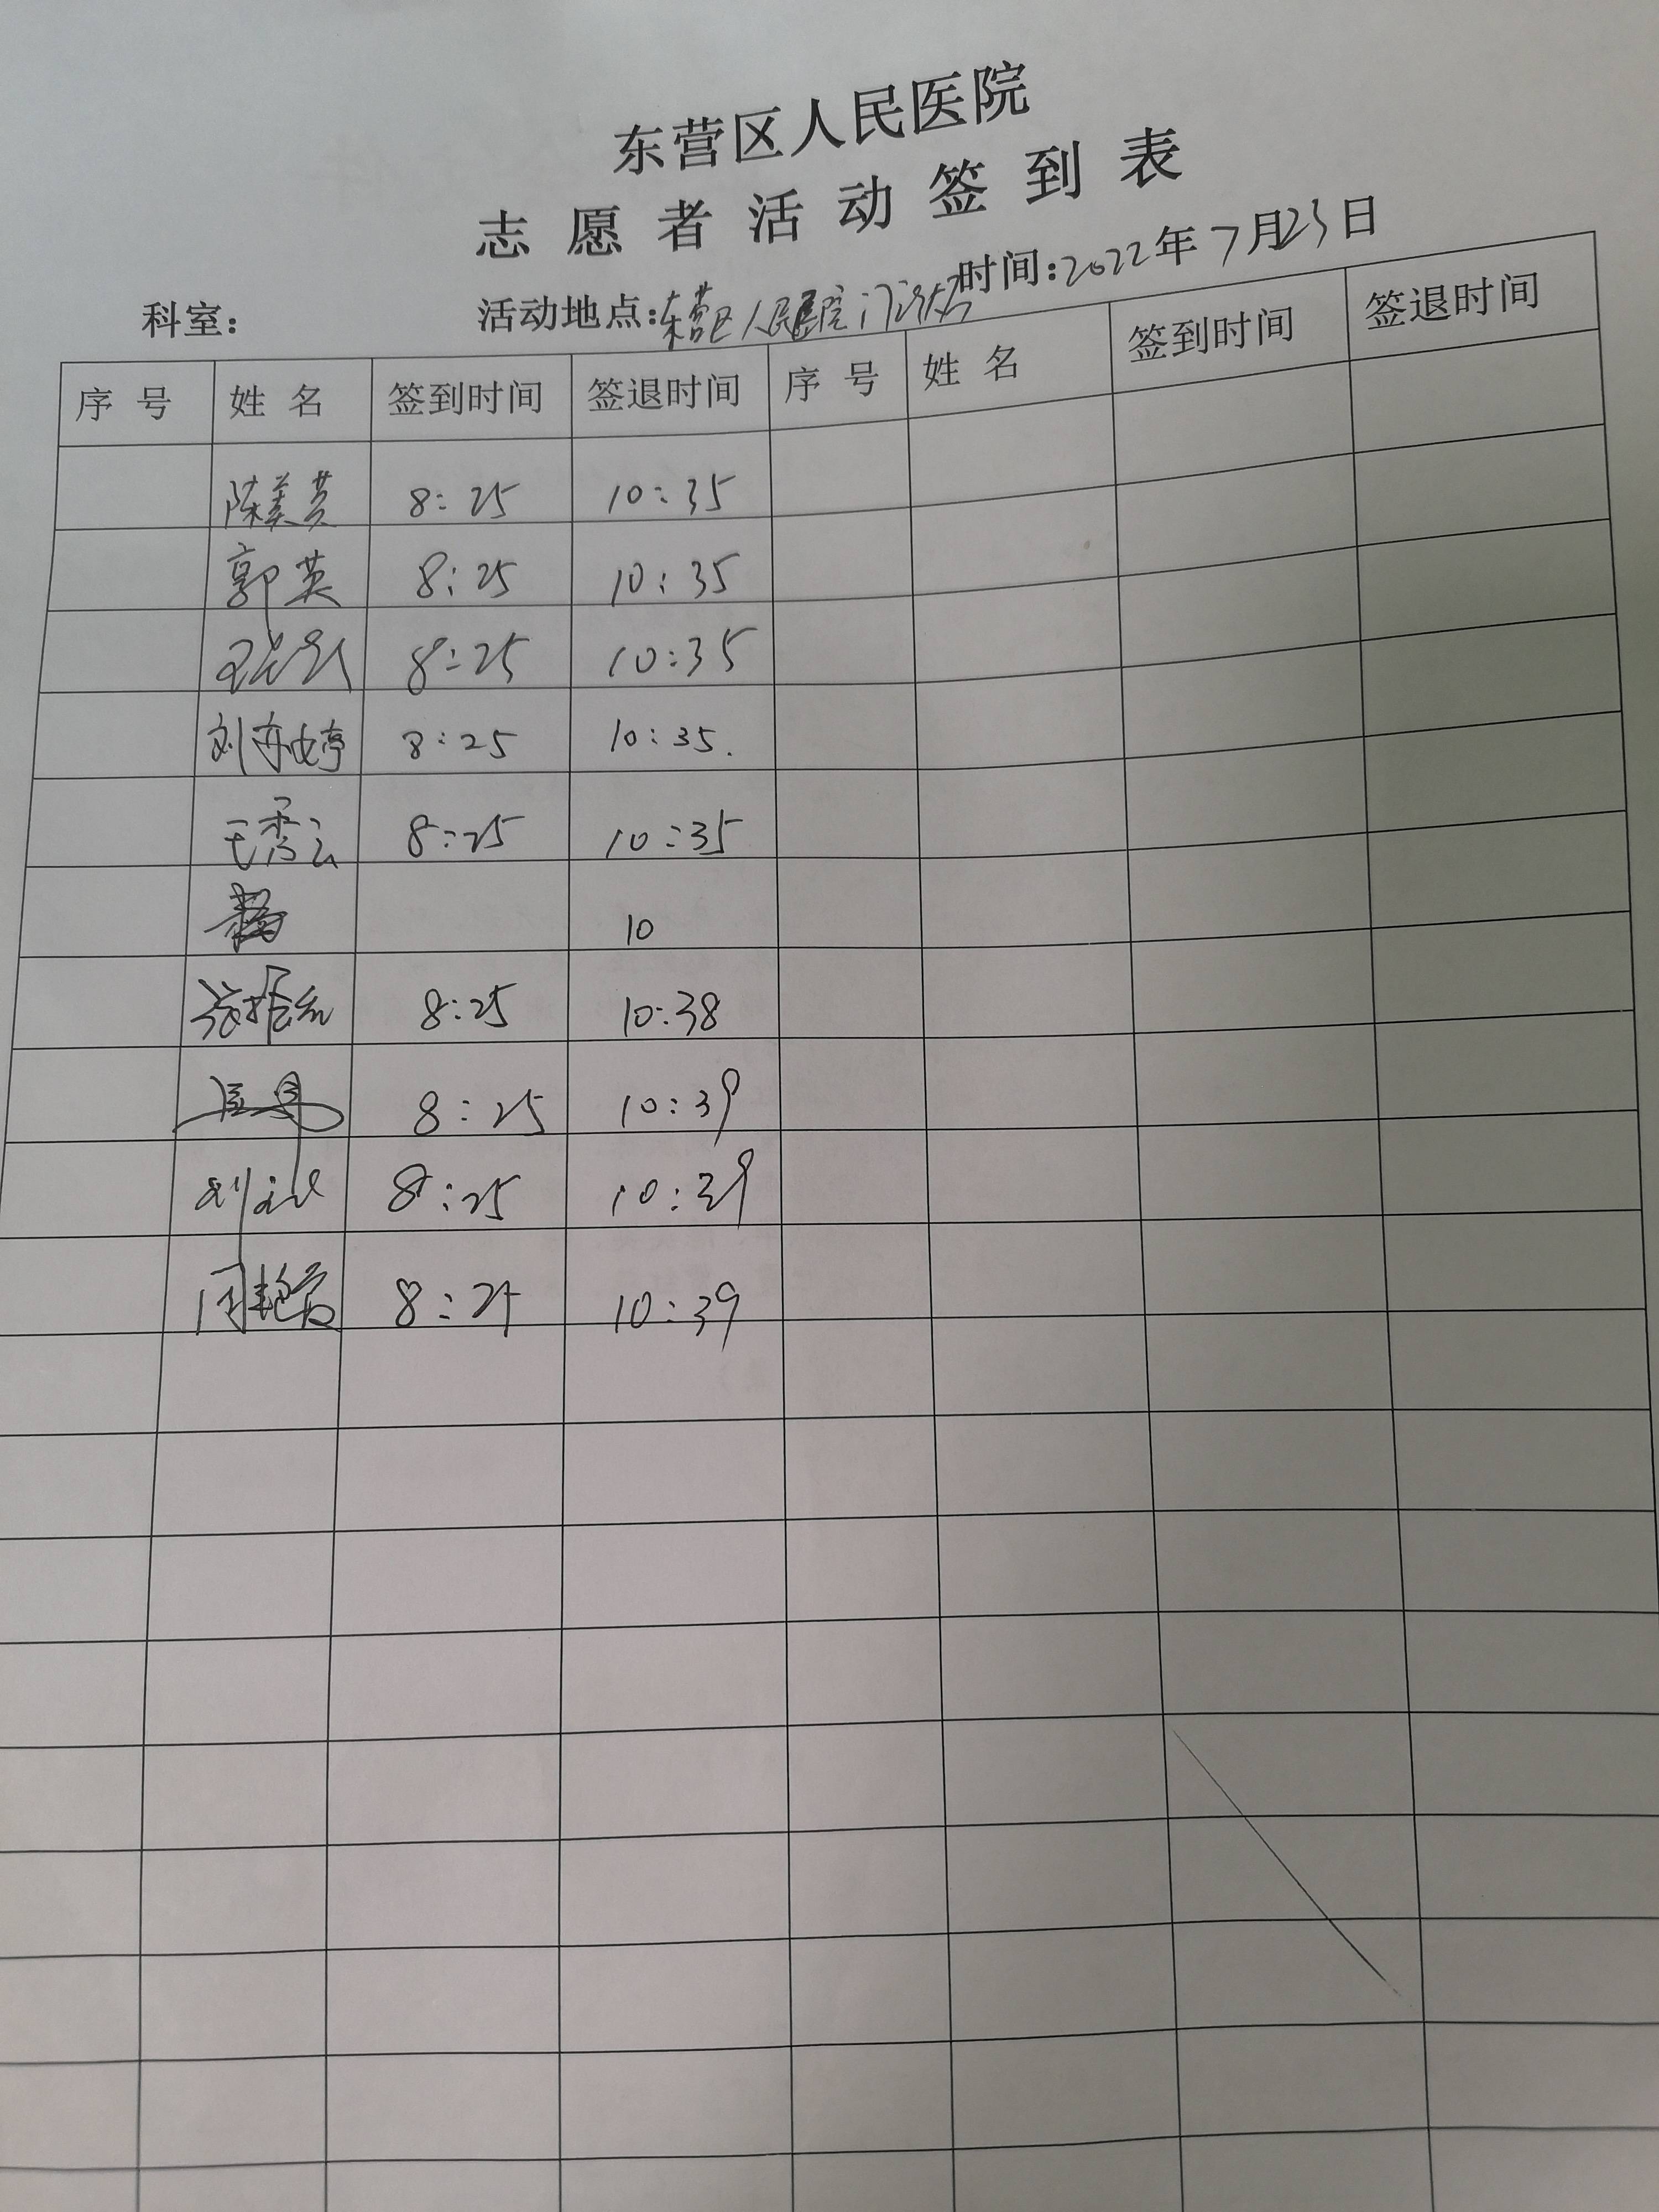 东营区人民医院
志愿者活动签到表
科室： 活动地点：东营区人民医院门诊大厅 时间：2022年7月23日
序号 姓名 签到时间 签退时间 序号 姓名 签到时间 签退时间
陈美英 8:25 10:35
郭英 8:25 10:35
8:25 10:35
刘婷 8:25 10:35.
王秀云 8:25 10:35
10
张 8:25 10:38
8:25 10:39
刘 8:25 10:39
周艳 8:25 10:39